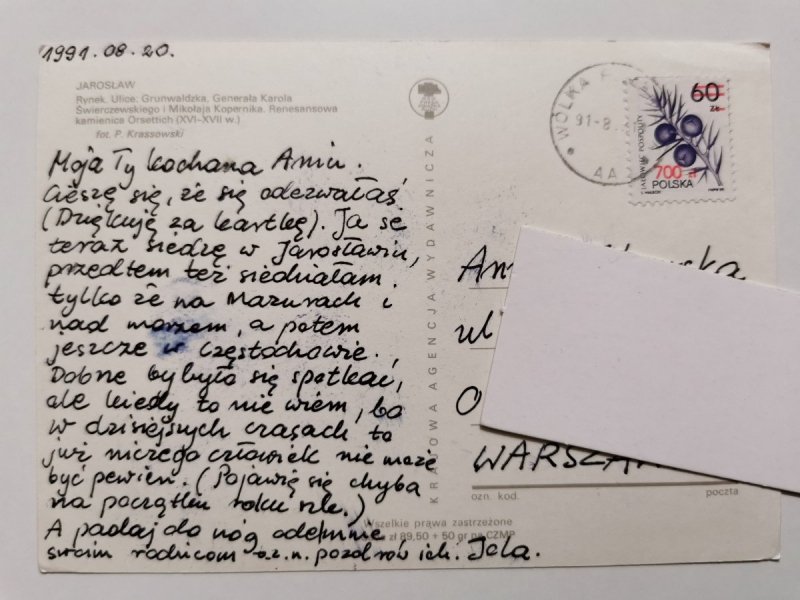 1991.08.20.
JAROSŁAW
Rynek. Ulice: Grunwaldzka, Generała Karola
Świerczewskiego i Mikołaja Kopernika. Renesansowa
kamienica Orsettich (XVI-XVII w.)
fot. P. Krassowski
Moja Ty kochana Aniu.
Cieszę się, że się odezwałaś
(Dziękuję za kartkę). Ja se
teraz siedzę w Jarosławiu,
przedtem też siedziałam.
tylko że na Mazurach i
nad morzem, a potem
jeszcze w Częstochowie.
Dobrze by było się spotkać,
ale kiedy to nie wiem, bo
w dzisiejszych czasach to
już niczego człowiek nie może
być pewien. (Pojawię się chyba
na początku roku szk.)
A padaj do nóg odemnie
swoim rodzicom o.z.n. pozdrów ich. Jola.
KRAJOWA AGENCJA WYDAWNICZA
Wszelkie prawa zastrzeżone
zł 89,50 + 50 gr na CZMP
WÓLKA
91-8.
AA
60
zł
700 zł
POLSKA
An
ska
ul
O
WARSZA
ozn. kod.
poczta